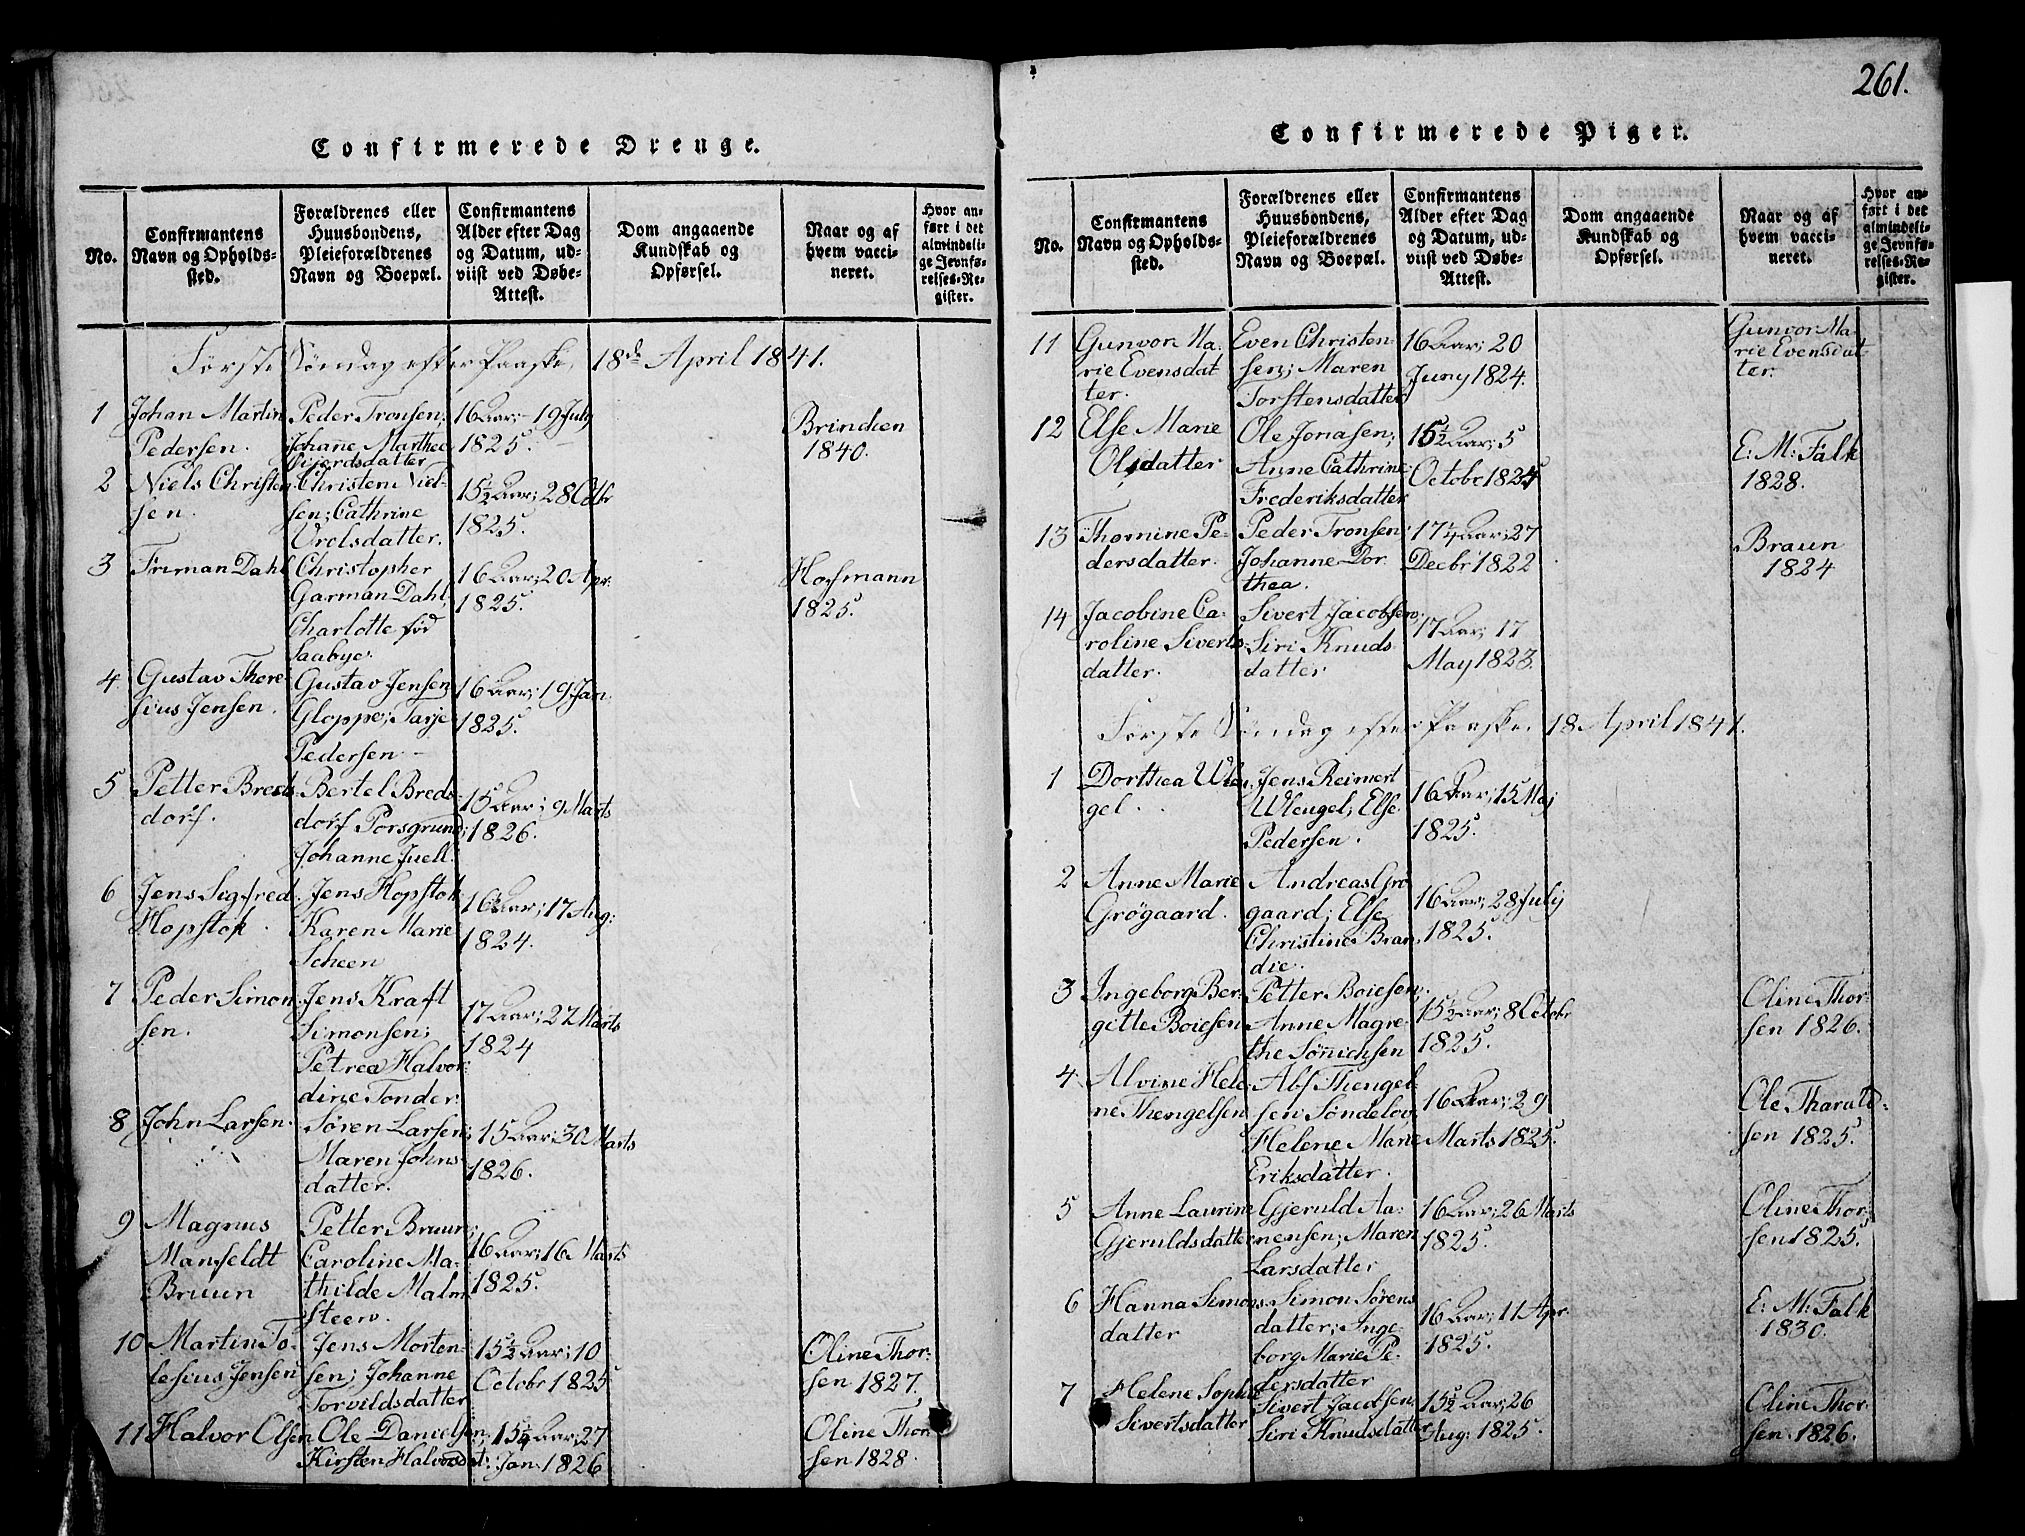 261.
Confirmerede Drenge.
No.
Confirmantens
Navn og Opholds-
sted.
Forældrenes eller
Huusbondens,
Pleieforældrenes
Navn og Boepæl.
Confirmantens
Alder efter Dag
og Datum, ud-
viist ved Døbe-
Attest.
Dom angaaende
Kundskab og
Opførsel.
Naar og af
hvem vacci-
neret.
Hvor an-
ført i det
almindeli-
ge Jevnfø-
relses-Re-
gister.
Første Søndag efter Paaske, 18de April 1841.
1
Johan Martin
Pedersen.
Peder Tronsen;
Johane Marthee
16 Aar; 19 July
1825.
Brinchen
1840.
2
Niels Christen-
sen.
Christen Niel-
sen; Cathrine
Vrolsdatter.
15½ Aar; 28 Octbr
1825.
3
Friman Dahl
Christopher
Garman Dahl;
Charlotte fød
Saabye.
16 Aar; 20 Apr.
1825.
Hoffmann
1825.
4
Gustav There-
sius Jensen.
Gustav Jensen
Gloppe; Tarje
Pedersen.
16 Aar; 19 Jan.
1825.
5
Petter Breds-
dorf.
Bertel Breds-
dorf Porsgrund;
Johanne Juell.
15 Aar; 9 Marts
1826.
6
Jens Sigfred
Hopstok.
Jens Hopstok
Karen Marie
Scheen
16 Aar; 17 Aug:
1824.
7
Peder Simon-
sen.
Jens Kraft
Simonsen;
Petrea Halvor-
dine Tonder.
17 Aar; 27 Marts
1824
8
John Larsen.
Søren Larsen;
Maren Johns-
datter.
15 Aar; 30 Marts
1826.
9
Magnus
Manfeldt
Bruun
Petter Bruun;
Caroline Ma-
thilde Malm-
steen.
16 Aar; 16 Marts
1825.
10
Martin To-
lesius Jensen
Jens Morten-
sen; Johanne
Torvildsdatter
15½ Aar; 10
Octobr 1825
Oline Thor-
sen 1827.
11
Halvor Olsen
Ole Danielsen;
Kirsten Halvorsdat:
15¼ Aar; 27
Jan. 1826
Oline Thor-
sen 1828.
Confirmerede Piger.
No.
Confirmantens
Navn og Opholds-
sted.
Forældrenes eller
Huusbondens,
Pleieforældrenes
Navn og Boepæl.
Confirmantens
Alder efter Dag
og Datum, ud-
viist ved Døbe-
Attest.
Dom angaaende
Kundskab og
Opførsel.
Naar og af
hvem vacci-
neret.
Hvor an-
ført i det
almindeli-
ge Jevnfø-
relses-Re-
gister.
11
Gunvor Ma-
rie Evensdat-
ter.
Even Christen-
sen; Maren
Torstensdatter
16 Aar; 20
Juny 1824.
Gunvor Ma-
rie Evensdat-
ter.
12
Else Marie
Olsdatter
Ole Jonasen;
Anne Cathrine
Frederiksdatter
15½ Aar; 5
Octobr 1825
E: M: Falk
1828.
13
Thomine Pe-
dersdatter.
Peder Tronsen
Johanne Dor-
thea.
17¼ Aar; 27
Decbr 1822
Braun
1824
14
Jacobine Ca-
roline Siverts-
datter.
Sivert Jacobsen;
Siri Knuds-
datter
17 Aar; 17
May 1823.
Første Søndag efter Paaske, 18 April 1841.
1
Dorthea Wlen-
gel.
Jens Reimert
Wlengel; Else
Pedersen.
16 Aar; 15 Maj
1825.
2
Anne Marie
Grögaard.
Andreas Grö-
gaard; Else
Christine Bran-
die.
16 Aar; 28 July
1825.
3
Ingeborg Ber-
gitte Boiesen
Petter Boiesen;
Anne Magre-
the Sönichsen
15½ Aar; 8 Octobr
1825.
Oline Thor-
sen 1826.
4
Alvine Hele-
ne Thengelsen
Abs. Thengel-
sen Søndeløv,
Helene Marie
Eriksdatter.
16 Aar; 29
Marts 1825.
Ole Tharald-
sen 1825.
5
Anne Laurine
Gjeruldsdatter
Gjeruld Aa-
nensen; Maren
Larsdatter
16 Aar; 26 Marts
1825.
Oline Thor-
sen 1825.
6
Hanna Simons-
datter
Simon Sørens-
datter; Inge-
borg Marie Pe-
dersdatter
16 Aar; 11 Apr.
1825.
E: M: Falk
1830.
7
Helene Sophie
Sivertsdatter
Sivert Jacobsen;
Siri Knudsdatter
15½ Aar; 26
Aug: 1825.
Oline Thor-
sen. 1826.